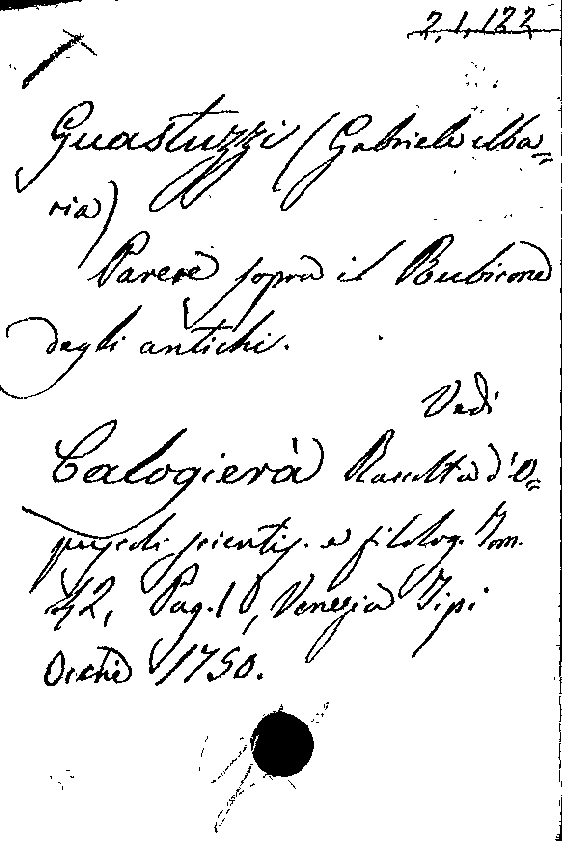 2.1.122
Guastuzzi (Gabriele Ma=
ria)
Parere sopra il Rubicone
degli antichi.
Vedi
Calogierà Raccolta d'O=
puscoli scientif. e filolog. Tom.
42, Pag. 1, Venezia Tipi
Occhi 1750.